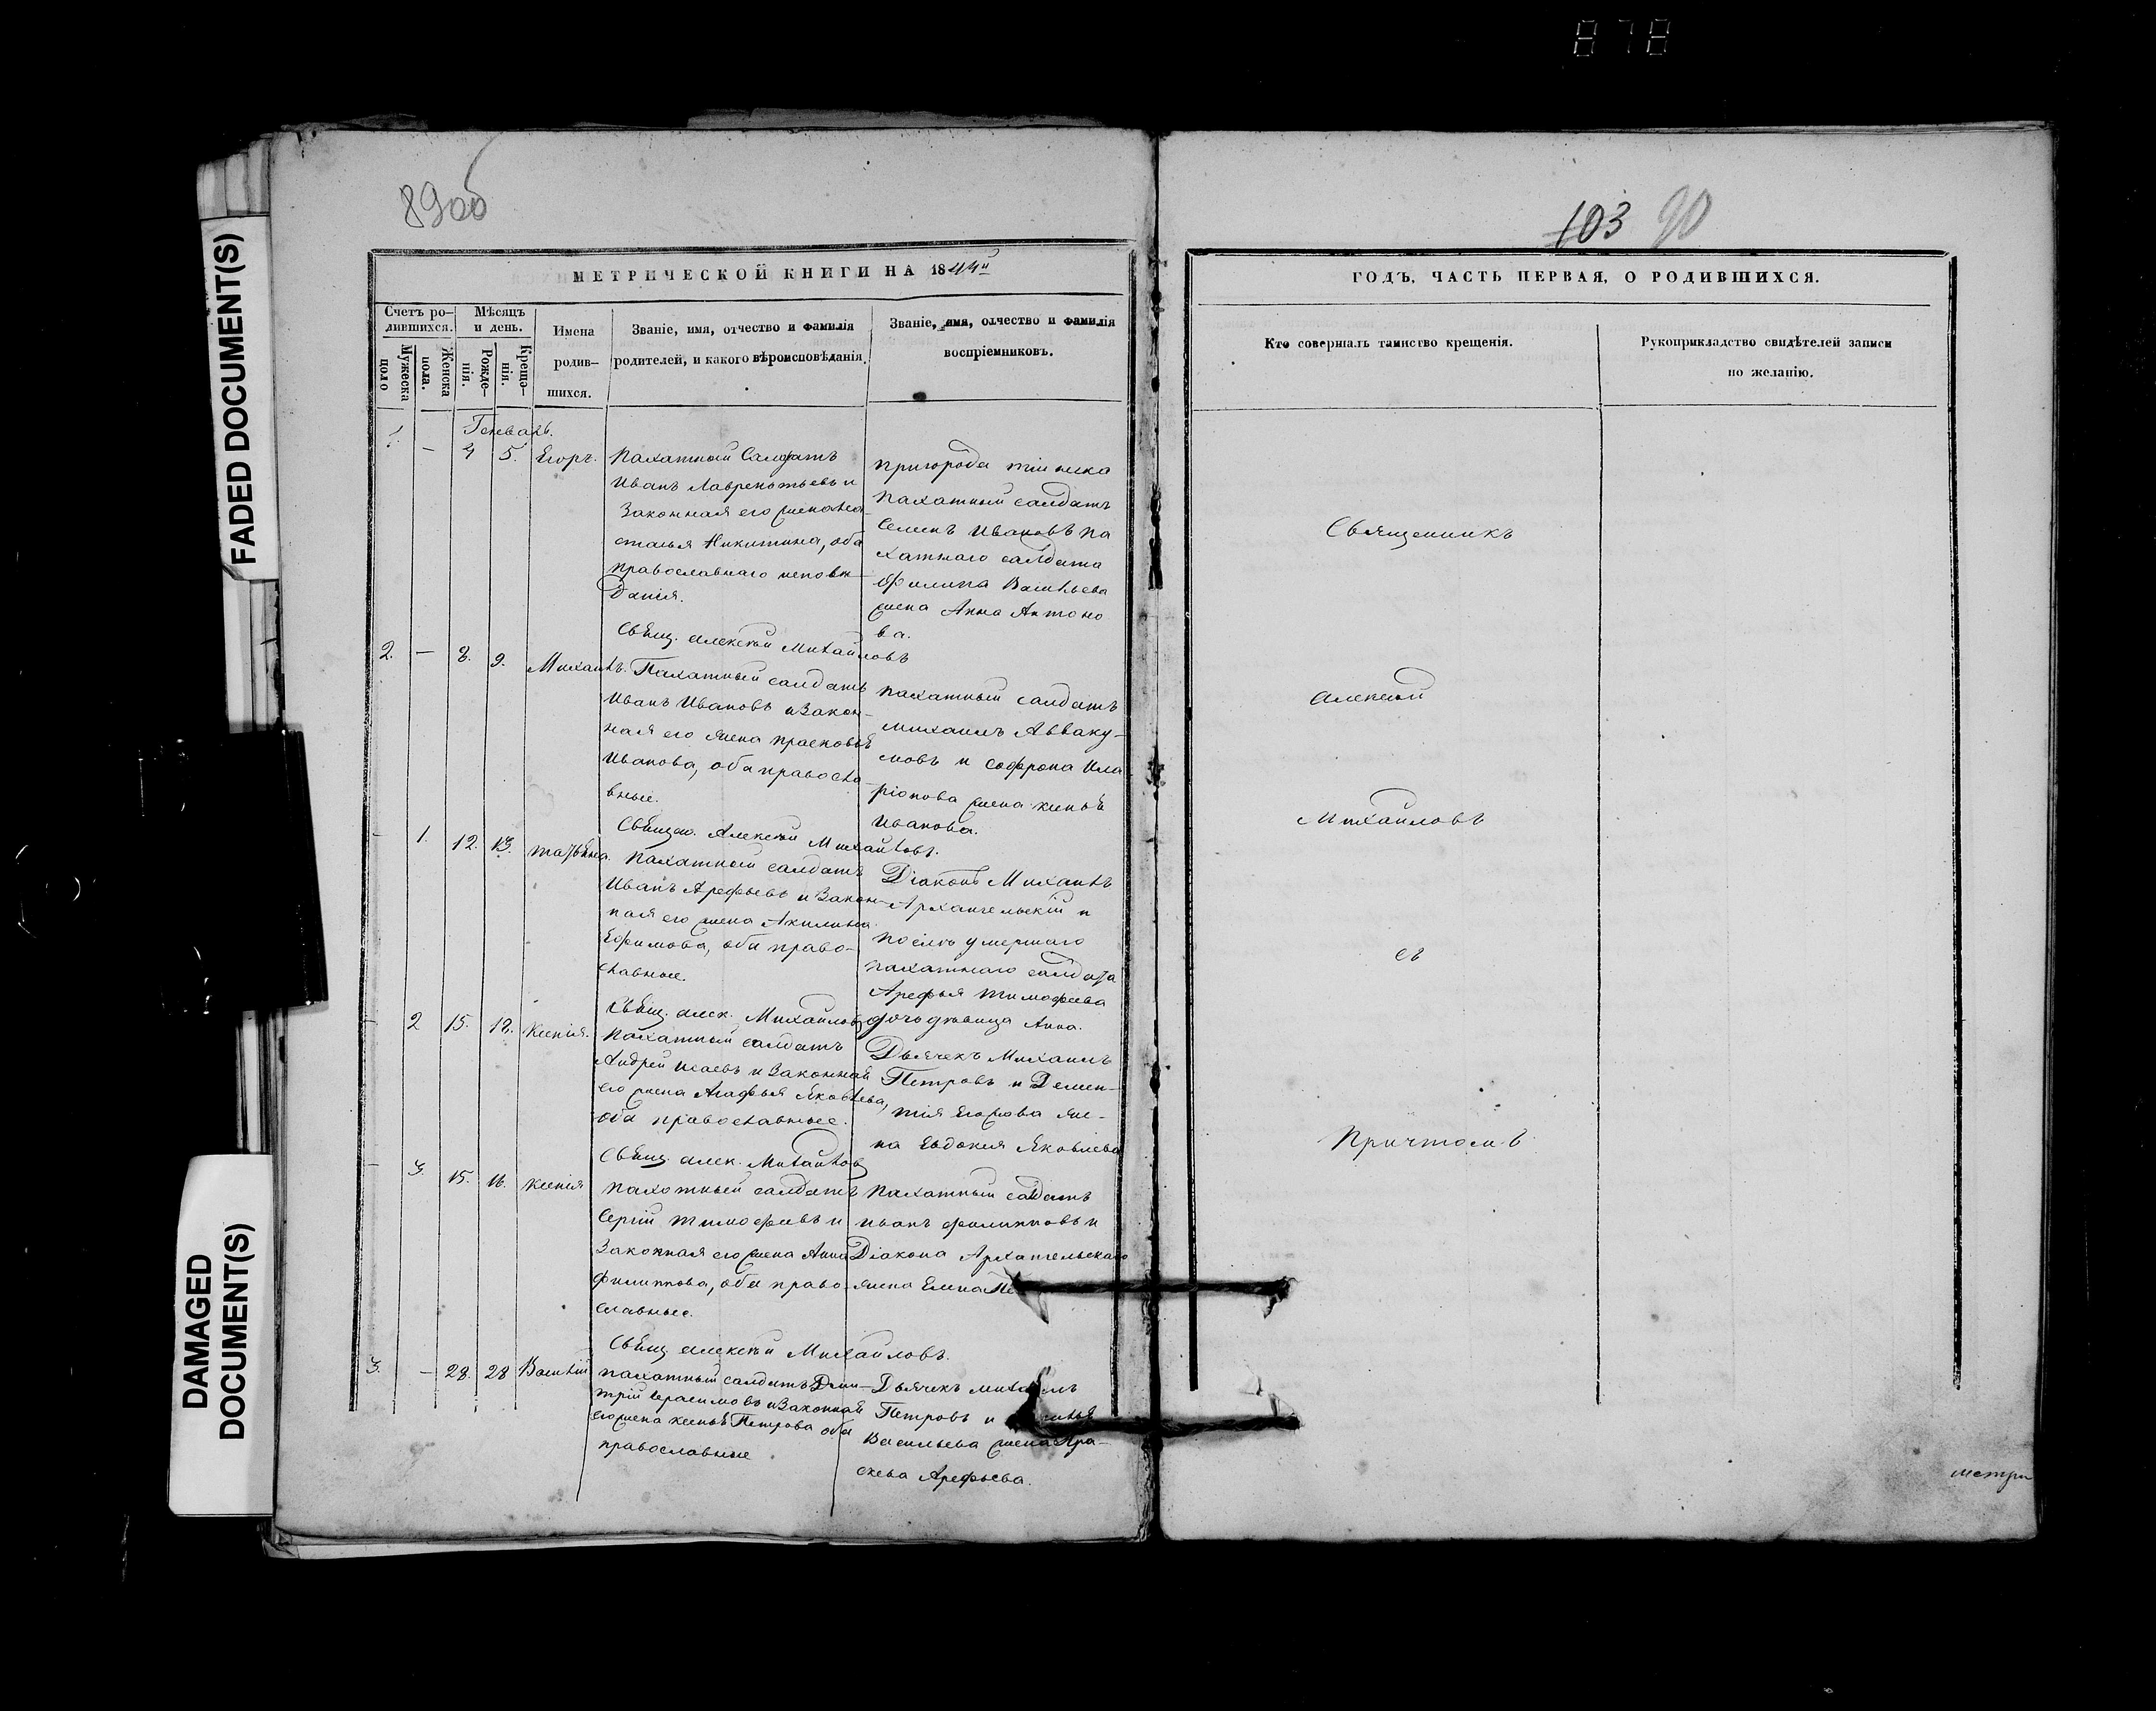 878
89об
103 90
FADED DOCUMENT(S)
DAMAGED DOCUMENT(S)
МЕТРИЧЕСКОЙ КНИГИ НА 1844й
Счетъ ро-
дившихся.
Мужеска
поло
Женска
пола.
Мѣсяцъ
и день.
Рожде-
нія.
Креще-
нія.
Имена
родив-
шихся.
Званіе, имя, отчество и фамилія
родителей, и какого вѣроисповѣданія.
Званіе, имя, отчество и фамилія
воспріемниковъ.
Генварь.
1. — 4 5. Егоръ.
Пахатный Салдатъ
Иванъ Лаврентьевъ и
Законная его жена На
сталья Никитина, оба
православнаго исповѣ-
данія.
Свѣщ. Алексѣй Михайловъ
пригорода Тіинска
пахатный салдатъ
Семенъ Ивановъ па
хатнаго салдата
Филипа Васильева
жена Анна Антоно
ва.
2. — 8. 9. Михаилъ.
Пахатный салдатъ
Иванъ Ивановъ и Закон-
ная его жена Прасковьѣ
Иванова, оба правосла-
вные.
Свѣщен. Алексѣй Михайловъ.
пахатный салдатъ
Михаилъ Авваку-
мовъ и Софрона Ила
ріонова жена Ксеньѣ
Иванова.
— 1. 12. 13. Татьѣна.
пахатный салдатъ
Иванъ Арефьевъ и Закон-
ная его жена Акилина
Ефимова, оба право-
славные.
Свѣщ. Алек. Михайловъ
Діаконъ Михаилъ
Архангельскій и
послѣ умершаго
пахатнаго салдата
Арефья Тимофеева
дочь дѣвица Анна.
— 2 15. 18. Ксенія.
Пахатный салдатъ
Андрей Исаевъ и Законнаѣ
его жена Агафья Яковлева,
оба православные.
Свѣщ. Алек. Михайловъ
Дьячекъ Михаилъ
Петровъ и Демен-
тія Егорова же-
на Евдокия Яковлева
— 3. 15. 16. Ксенія
пахотный салдатъ
Сергій Тимофѣевъ и
Законная его жена Анна
Филиппова, оба право-
славные.
Свѣщ. Алексѣй Михайловъ.
Пахатный салдатъ
Иванъ Филипповъ и
Діакона Архангельскаго
жена Елена
3. — 28. 28 Василій
пахатный салдатъ Дми-
трій Герасимовъ и Законнаѣ
его жена Ксеньѣ Петрова оба
православные
Дьячекъ Михаилъ
Петровъ и
Васильева жена Пра-
скева Арефьева.
ГОДЪ, ЧАСТЬ ПЕРВАЯ, О РОДИВШИХСЯ.
Кто совершалъ таинство крещенія.
Рукоприкладство свидѣтелей записи
по желанію.
Священникъ
Алексѣй
Михайловъ
съ
Причтомъ
метри